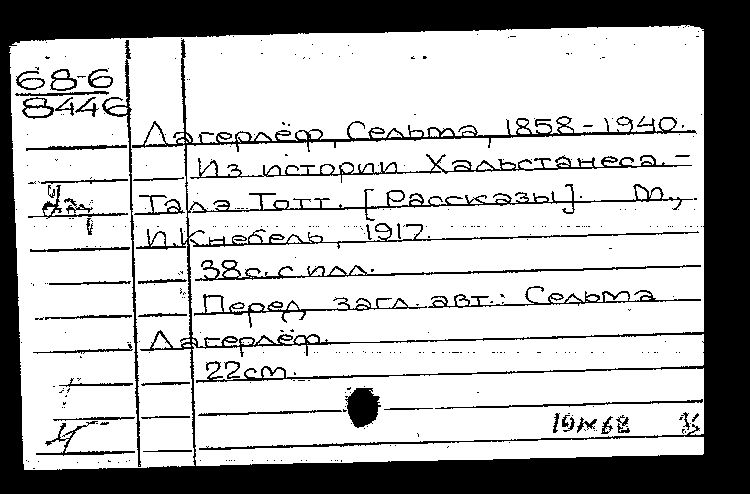 68-6
8446
Лагерлёф, Сельма, 1858-1940.
Из истории Хальстанеса. -
Талэ Тотт. [Рассказы]. М.,
И.Кнебель, 1917.
38с. с илл.
Перед загл. авт.: Сельма
Лагерлёф.
22см.